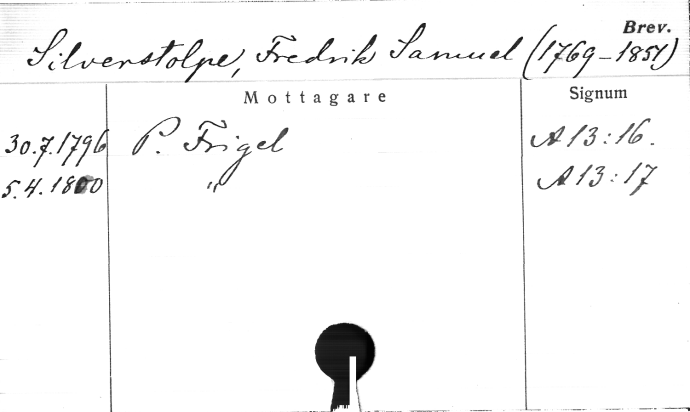 Brev.
Silverstolpe, Fredrik Samuel (1769-1851)
Mottagare Signum
30.7.1796 P. Frigel A13:16.
5.4.1800 " A13:17